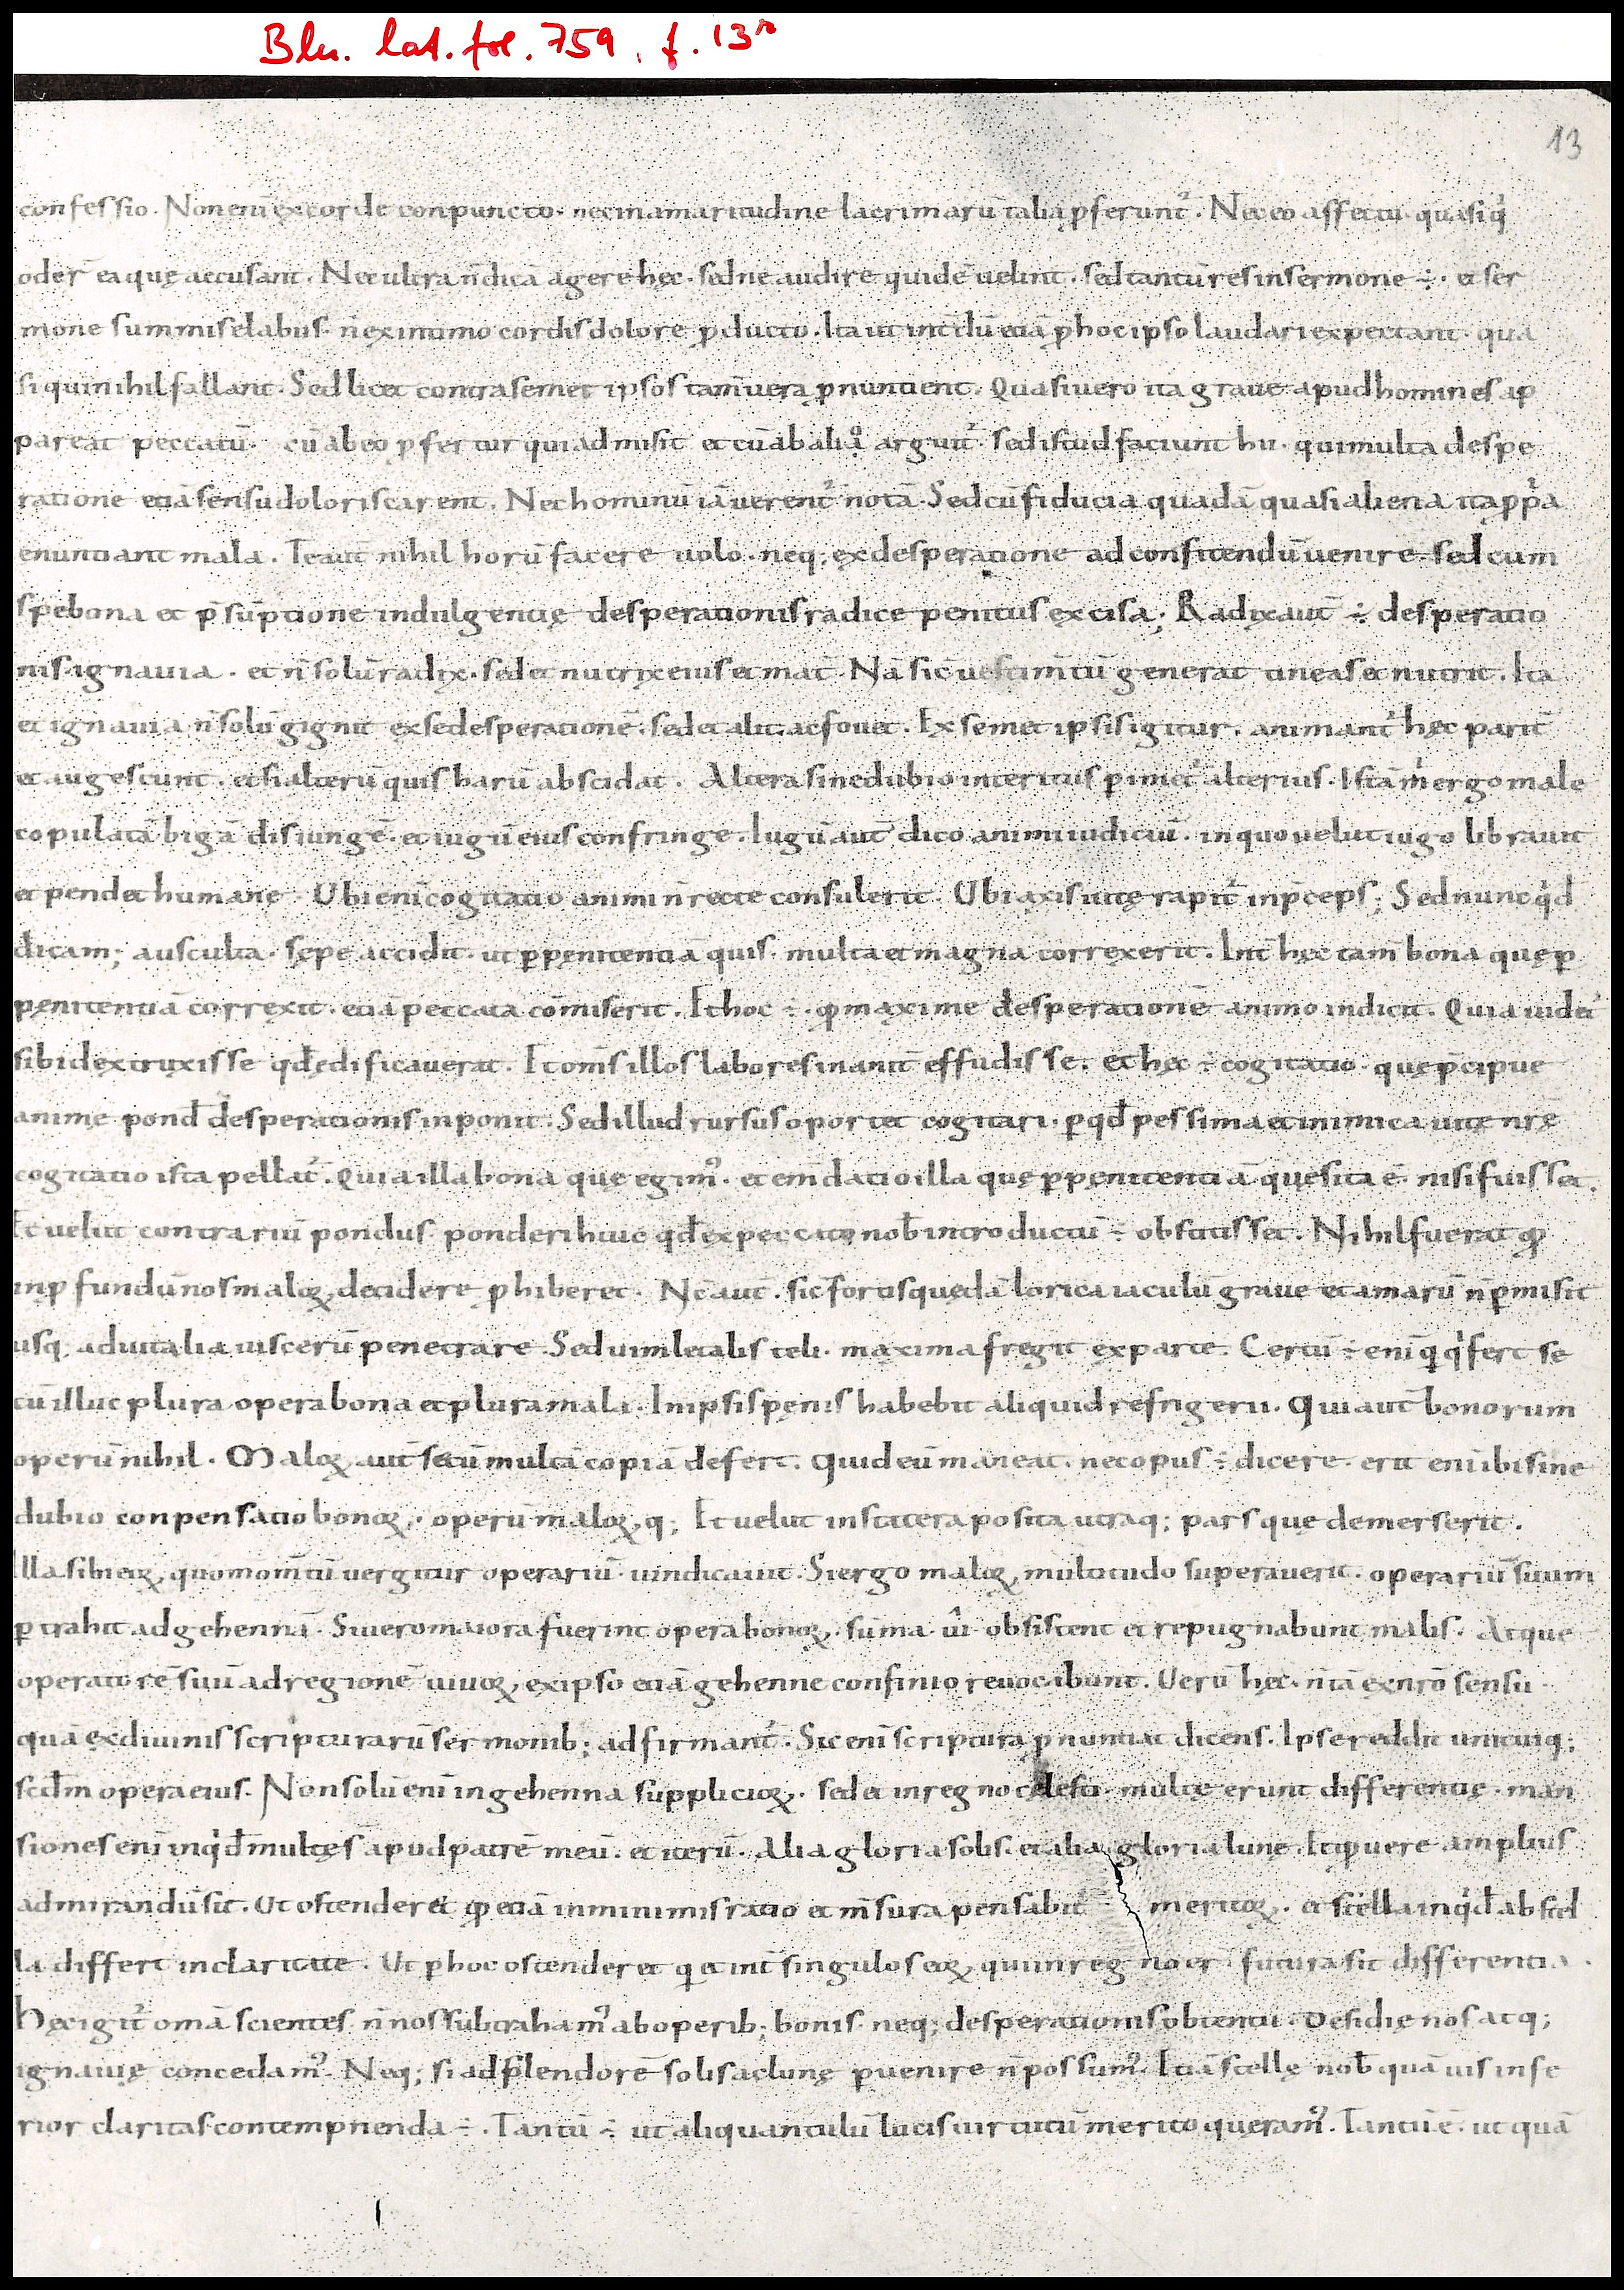 Bln. lat. fol. 759, f. 13r
13
confessio. Non eni ex corde conpuncto. nec in amaritudine lacrimarū talia ꝓferunt᷑. Nec eo affectu. quasi qͥ
oder̄ ea quę accusant. Nec ultra n̄ dicā agere hęc. sed ne audire quidē uelint. sed tantū res in sermone ÷. et ser
mone summis elabiis. n̄ ex intimo cordis dolore ꝓducto. Ita ut int̄dū etiā ꝑ hoc ipso laudari expectant. qua
si qui nihil fallant. Sed licet contra semet ipsos tam uera ꝓnuntient. Quasi uero ita graue apud homines ap
pareat peccatū. cū ab eo ꝓfertur qui admisit et cū ab aliqͦ arguit᷑. sed istud faciunt hii. qui multa despe
ratione etiā sensu doloris carent. Nec hominū iā uerent᷑ notā. Sed cū fiducia quadā quasi aliena ita ꝓpͥa
enuntiant mala. Te aut̄ nihil horū facere uolo. neq; ex desperatione ad confitendū uenire. sed cum
spe bona et p̄sūptione indulgentię desperationis radice penitus excisa; Radix aut̄ ÷ desperatio
nis ignauia. et n̄ solū radix. sed et nutrix eius et mat̄. Nā sic uestim̄tū generat tineas et nutrit. Ita
et ignauia n̄ solū gignit ex se desperationē. sed et alit ac fouet. Ex semet ipsis igitur. animant᷑ hęc parit̄
et augescunt. et si alterū quis harū abscidat. Altera sine dubio interitus ꝑimet᷑ alterius. Istā m̊ ergo male
copulatā bigā disiunge. et iugū eius confringe. Iugū aut̄ dico animi iudiciū. in quo uelut iugo librauit
et pendet humanę. Ubi eni cogitatio animi n̄ recte consulerit. Ubi axis uitę rapit᷑ in p̄ceps; Sed nunc qͥd
dicam; ausculta. sępe accidit. ut ꝑ pęnitentiā quis. multa et magna correxerit. Int̄ hęc tam bona quę ꝑ
pęnitentiā correxit. etiā peccata cōmiserit. Et hoc ÷. qđ maxime desperationē animo indicit. Quia uidet᷑
sibi dextruxisse qđ ędificauerat. Et om̄s illos labores inanit̄ effudisse. et hęc ÷ cogitatio. quę p̄cipue
animę pond̄ desperationis inponit. Sed illud rursus oportet cogitari. ꝑ qđ pessima et inimica uitę nr̄ę
cogitatio ista pellat᷑. Quia illa bona quę egim᷒. et em̄datio illa quę ꝑ pęnitentiā quęsita ē. nisi fuisset.
Et uelut contrariū pondus ponderi huic qđ ex peccato nob̄ introductū ÷ obstitisset. Nihil fuerat qđ
in ꝓfundū nos maloꝝ decidere ꝓhiberet. Nc̄ aut̄. sic̄ fortis quędā lorica iaculū graue et amarū n̄ ꝑmisit
usq; ad uitalia uiscerū penetrare. Sed uim letalis teli. maxima fregit ex parte. Certū ÷ eni qđ qͥ fert se
cū illuc plura opera bona et plura mala. In ipsis pęnis habebit aliquid refrigerii. Qui aut̄ bonorum
operū nihil. Maloꝝ aut̄ secū multā copiā defert. Quid eū maneat. nec opus ÷ dicere. erit eni ibi sine
dubio conpensatio bonoꝝ. operū maloꝝq; Et uelut in statera posita utraq; pars que demerserit.
Illa sibi eoꝝ, quo mom̄tū uergitur operariū uindicauit. Si ergo maloꝝ, multitudo superauerit. operariū suum
ꝑtrahit ad gehennā. Si uero maiora fuerint opera bonoꝝ. sūma ui obsistent et repugnabunt malis. Atque
operatorē suū ad regionē uiuoꝝ, ex ipso etiā gehenne confinio reuocabunt. Uerū hęc. n̄ tā ex nr̄o sensu
quā ex diuinis scripturarū sermonib; adfirmant᷑. Sic eni scriptura ꝓnuntiat dicens. Ipse reddit unicuiq;
scđm opera eius. Non solū eni in gehenna supplicioꝝ. sed et in regno cęlesti. multę erunt differentię. man
siones eni inqͥd multę s̄ apud patrē meū. et iterū. Alia gloria solis. et alia gloria lunę. Et qđ uere amplius
admirandū sit. Ut ostenderet qđ etiā in minimis ratio et m̄sura pensabit᷑ meritoꝝ. et stella inqͥd ab stel
la differt in claritate. Ut ꝑ hoc ostenderet qđ et int̄ singulos eoꝝ, qui in regno er̄ futura sit differentia.
Hęc igit᷑ om̄ā scientes n̄ nos subtraham᷒ ab operib; bonis neq; desperationis obtentu. Desidię nos atq;
ignauię concedam᷒. Neq; si ad splendorē solis ac lunę ꝑuenire n̄ possum᷒. Etiā stellę nob̄ quāuis infe
rior claritas contempnenda ÷. Tantū ÷ ut aliquantulū lucis uirtutū merito queram᷒. Tantū ē. ut quā